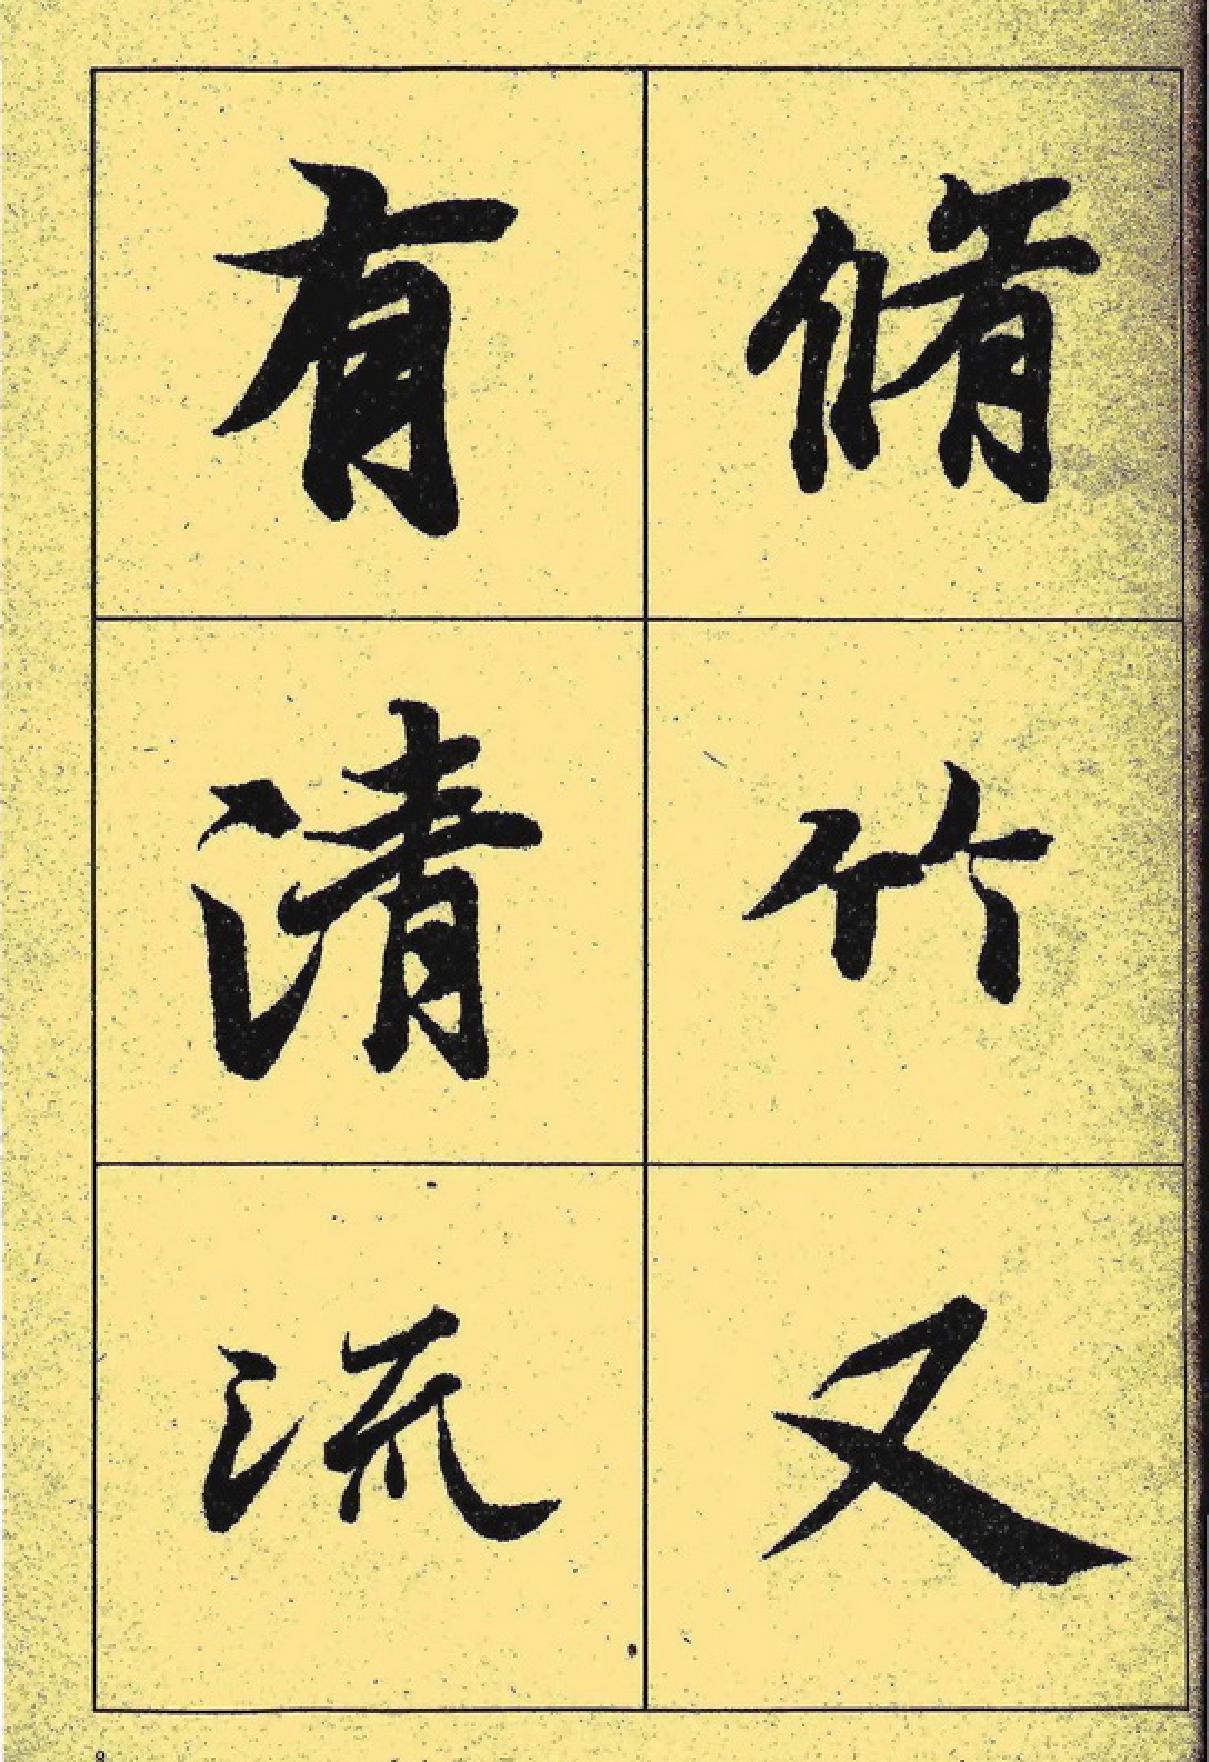 脩竹又
有清流
8